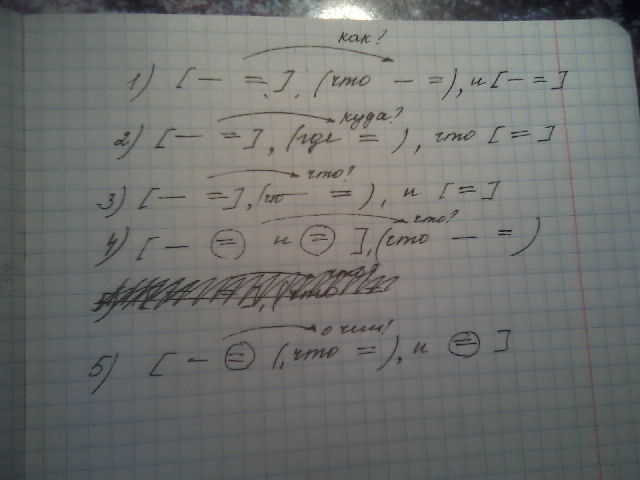 как?
1) [— =], (что — =), и [— =]
куда?
2) [— =], (где =), что [=]
что?
3) [— =], (что — =), и [=]
что?
4) [— = и =], (что — =)
о чём?
5) [— = (, что =), и =]